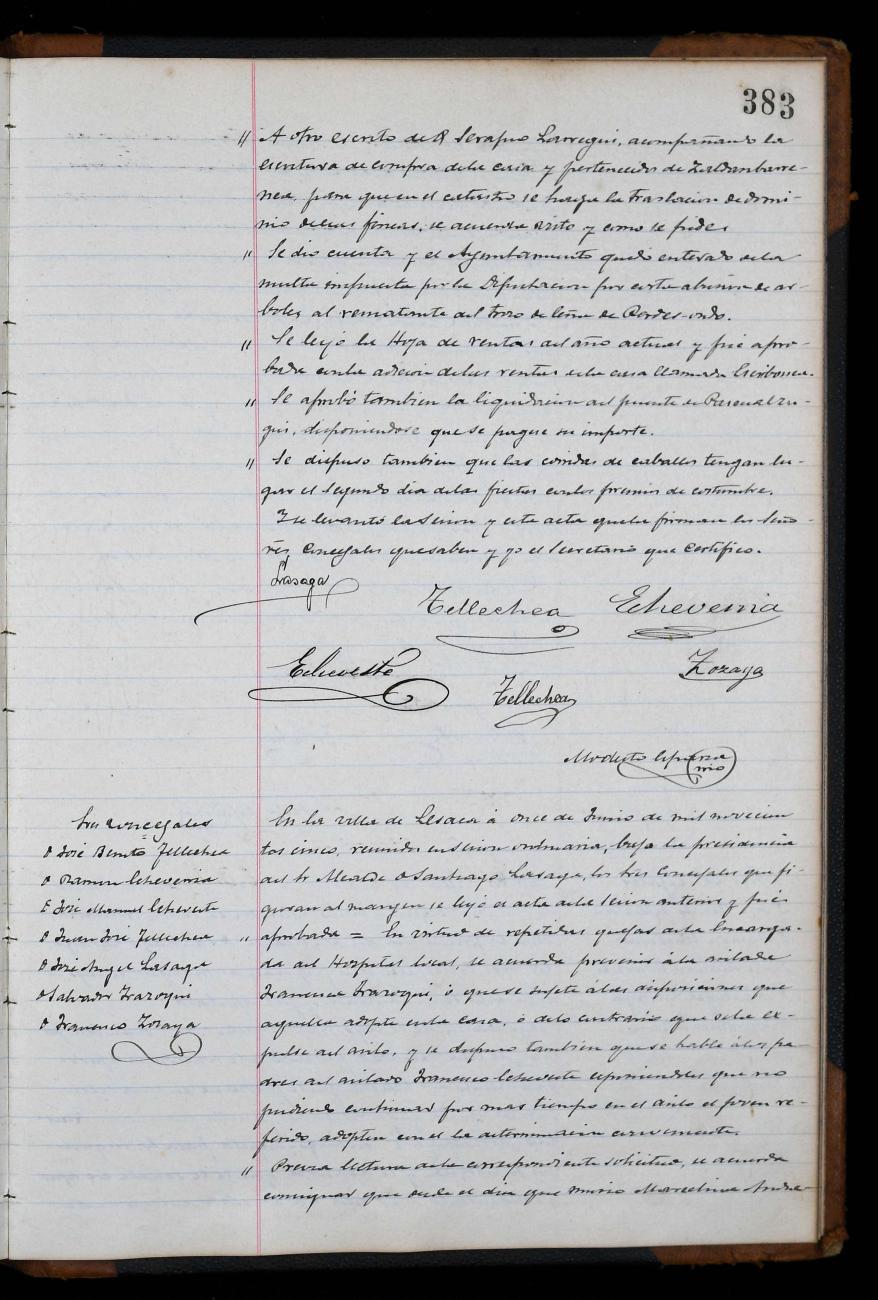 383
" A otro escrito de D Serapio Larregui, acompañando la
escritura de compra dela casa y pertenecidos de Zaldanbarre-
nea, para que en el catastro se haga la traslacion de domi-
nio de esas fincas, se acuerda visto y como se pide.
" Se dio cuenta y el Ayuntamiento quedó enterado dela
multa impuesta por la Diputacion por corta abusiva de ar-
boles al rematante del trozo de leña de
" Se leyó la Hoja de ventas del año actual y fué apro-
bada con la adicion delas ventas dela casa llamada
" Se aprobó tambien la liquidacion del puente de
gui, disponiendose que se pague su importe.
" Se dispuso tambien que las corridas de caballos tengan lu-
gar el segundo dia delas fiestas conlos premios de costumbre.
Y se levantó la sesion y esta acta quela firman los Seño-
res Concejales quesaben y yo el Secretario que certifico.
Lasaga
Tellechea Echeverria
Echeveste Zozaya
Tellechea
Modesto
Sres Concejales
D José Benito Tellechea
D Ramon Echeverria
D José Manuel Echeveste
D Juan José Tellechea
D José Angel Lasaga
D Salvador Irazoqui
D Francisco Zozaya
En la villa de Lesaca á once de Junio de mil novecien
tos cinco, reunidos en sesion ordinaria, bajo la presidencia
del Sr Alcalde D Santiago Lasaga, los Sres Concejales que fi-
guran al margen se leyó el acta dela sesion anterior y fué
" aprobada = En virtud de repetidas quejas dela Encarga-
da del Hospital local, se acuerda prevenir ála asilada
Francisca Irazoqui, ó quese sujete álas disposiciones que
aquella adopte enla casa, ó delo contrario que sela ex-
pulse del asilo, y se dispuso tambien quese hable álos pa-
dres del asilado Francisco Echeveste esponiendoles que no
pudiendo continuar por mas tiempo en el asilo el joven re-
ferido, adopten con el la determinacion conveniente.
" Previa lectura dela correspondiente solicitud, se acuerda
consignar que desde el dia que murio Marcelina Andre-